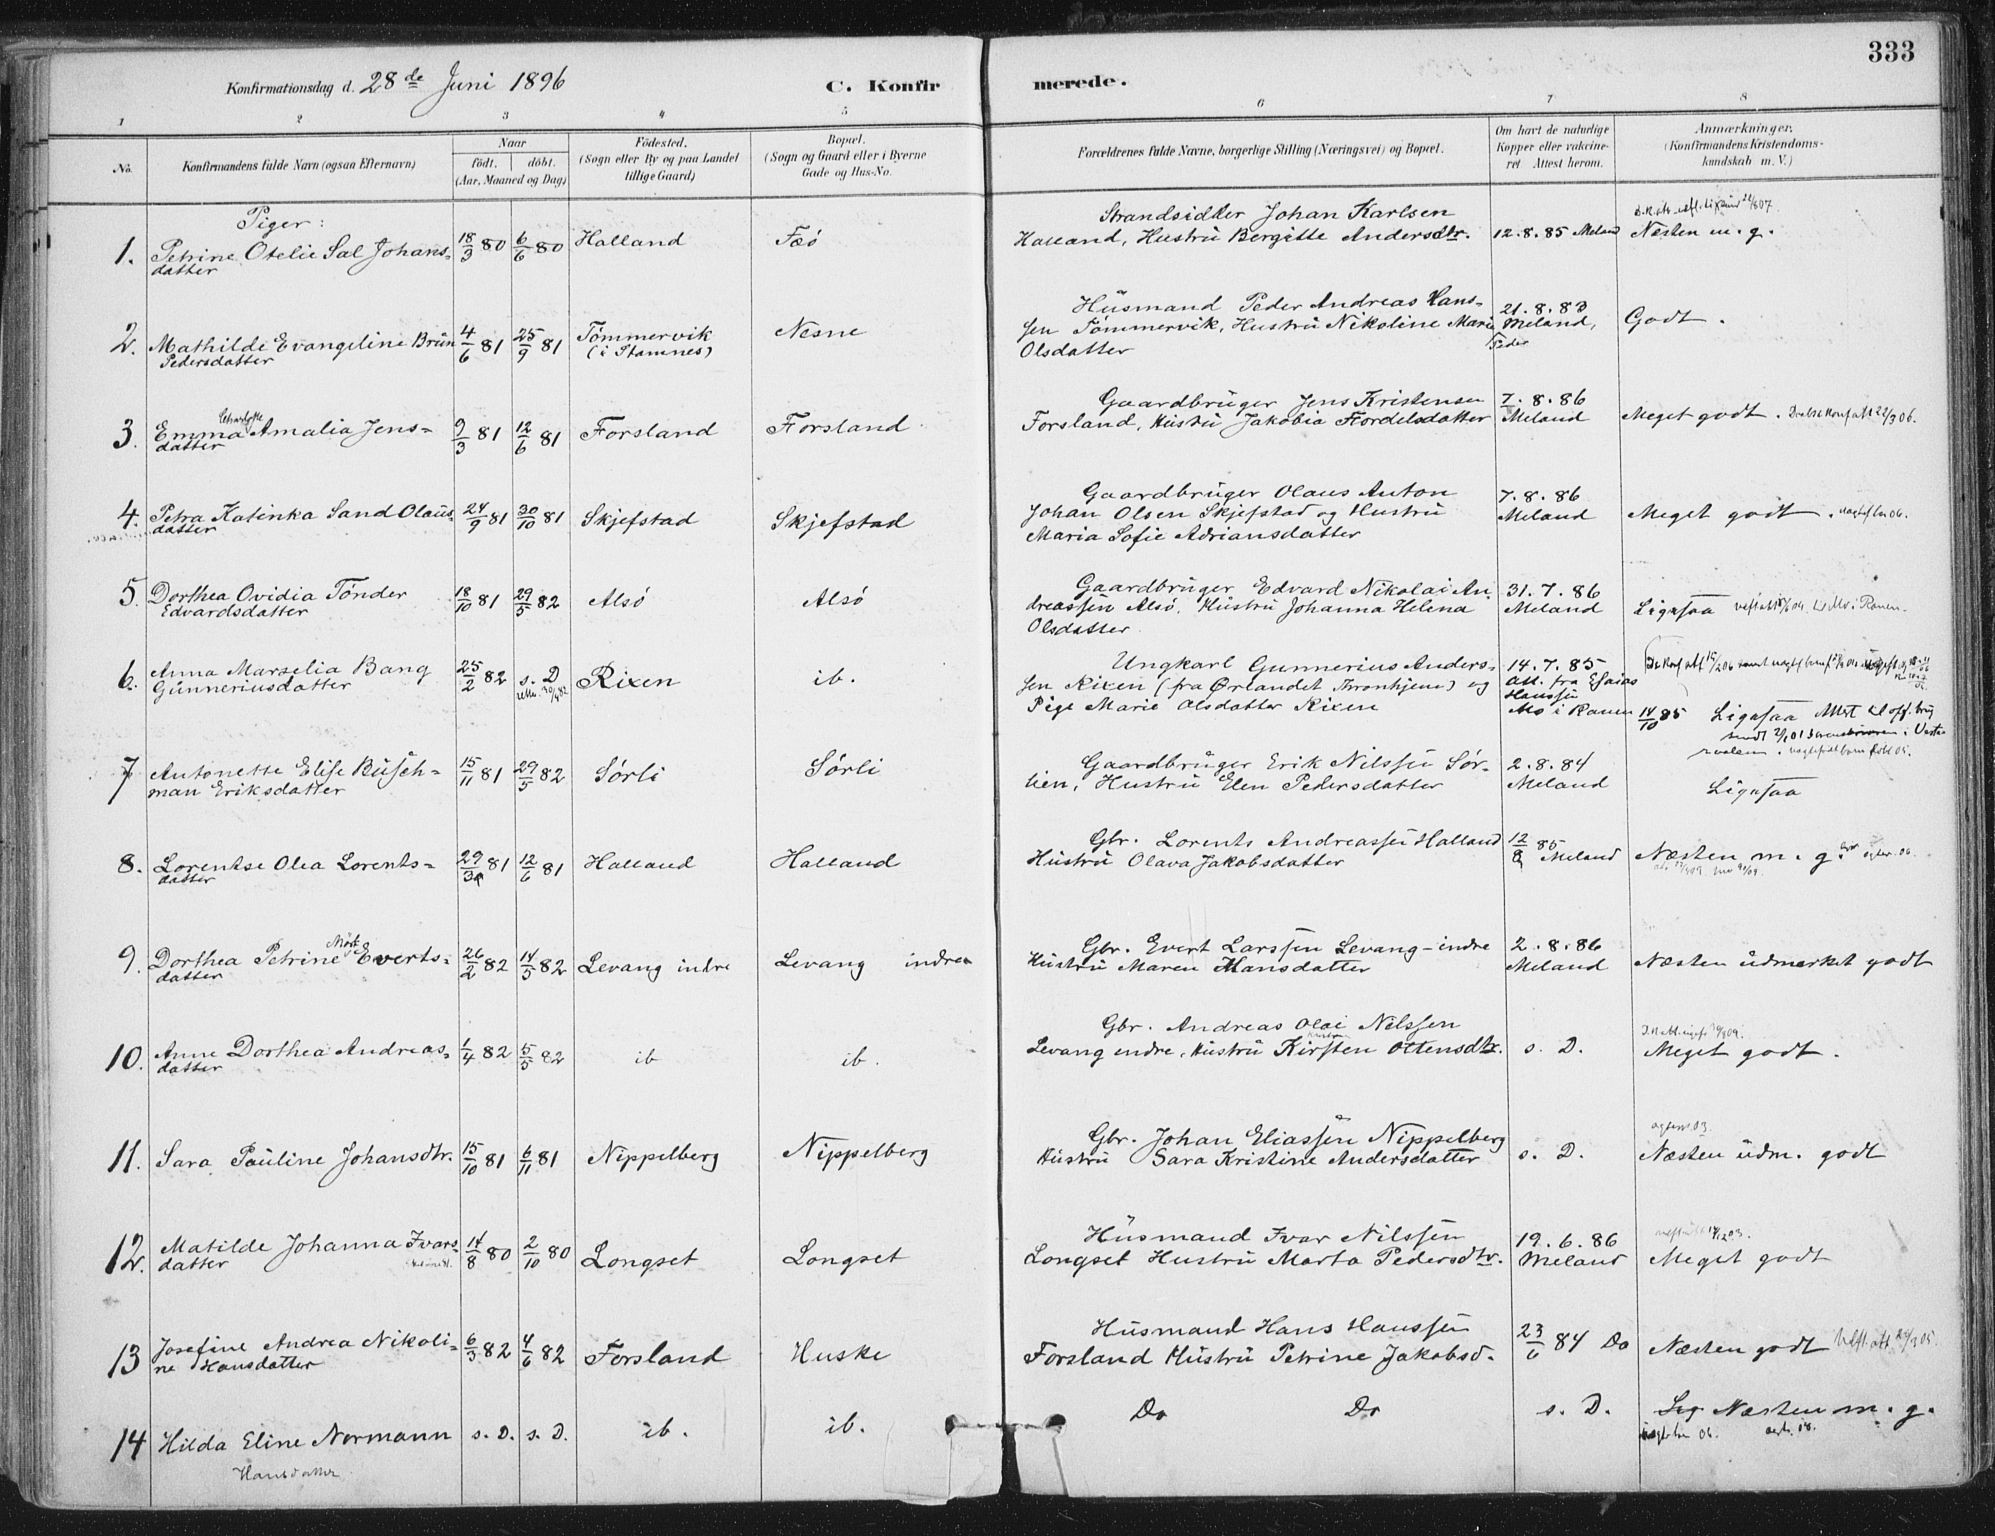 333
Konfirmationsdag d. 28de Juni 1896 C. Konfirmerede.
1 2 3 4 5 6 7 8
No. Konfirmandens fulde Navn (ogsaa Efternavn) Naar født, døbt. (Aar, Maaned og Dag) Fødested. (Sogn eller By og paa Landet tillige Gaard) Bopæl. (Sogn og Gaard eller i Byerne Gade og Hus-No. Forældrenes fulde Navne, borgerlige Stilling (Næringsvei) og Bopæl. Om havt de naturlige Kopper eller vakcineret Attest herom. Anmærkninger. (Konfirmandens Kristendomskundskab m. V.)
Piger:
1. Petrine Otelie Sal Johans=
datter 18/3 80 6/6 80 Halland Fæö
Strandsidder Johan Karlsen
Halland, Hustru Bergitte Andersdtr. 12.8.85 Meland Næsten m. g.
2. Mathilde Evangeline Brun
Pedersdatter 4/6 81 25/9 81 Tömmervik
(i Stamnes) Nesne
Husmand Peder Andreas Hans=
sen Tömmervik, Hustru Nikoline Marie
Olsdatter Peder 21.8.83
Meland, Godt.
3. Emma Charlotte Amalia Jens=
datter 9/3 81 12/6 81 Forsland Forsland
Gaardbruger Jens Kristensen
Forsland, Hustru Jakobia Fordelsdatter 7.8.86
Meland Meget godt. 22/3 06.
4. Petra Katinka Sand Olaus=
datter 24/9 81 30/10 81 Skjefstad Skjefstad
Gaardbruger Olaus Anton
Johan Olsen Skjefstad og Hustru
Maria Sofie Adriansdatter 7.8.86
Meland Meget godt.
5. Dorthea Ovidia Tönder
Edvardsdatter 18/10 81 29/5 82 Alsö Alsö
Gaardbruger Edvard Nikolai An=
dreassen Alsö, Hustru Johanna Helena
Olsdatter 31.7.86
Meland Ligesaa
6. Anna Marselia Bang
Gunneriusdatter 25/2 82 s. D Rixen ib.
Ungkarl Gunnerius Anders=
sen Rixen (fra Ørlandet Tronhjem) og
Pige Marie Olsdatter Rixen 14.7.85
Att. fra Esaias
Hanssen
Mo i Ranen 14/10 85 Ligesaa
7 Antonette Elise Busch=
man Eriksdatter 15/11 81 29/5 82 Sörli Sörli
Gaardbruger Erik Nilssen Sör=
lien, Hustru Elen Pedersdatter 2.8.84
Meland Ligesaa
8. Lorentse Olea Lorents=
datter 29/3 81 12/6 81 Halland Halland
Gbr. Lorents Andreassen Halland
Hustru Olava Jakobsdatter 12/8 85 Meland Næsten m. g.
9. Dorthea Petrine Mörk Everts=
datter 26/2 82 14/5 82 Levang indre Levang indre
Gbr. Evert Larssen Levang-indre
Hustru Maren Hansdatter 2.8.86
Meland Næsten udmerket godt
10. Anne Dorthea Andreas=
datter 1/4 82 5/5 82 ib ib.
Gbr. Andreas Olai Nilssen
Levang indre, Hustru Kirsten Ottensdtr. s. D. Meget godt.
11. Sara Pauline Johansdtr. 15/10 81 6/11 81 Nippelberg Nippelberg
Gbr. Johan Eliassen Nippelberg
Hustru Sara Kristine Andersdatter s. D. Næsten udm. godt
12. Matilde Johanna Ivars=
datter 14/8 80 2/10 80 Longset Longset
Husmand Ivar Nilssen
Longset Hustru Marta Pedersdtr. 19.6.86
Meland Meget godt
13 Josefine Andrea Nikoli=
ne Hansdatter 6/3 82 4/6 82 Forsland Huske
Husmand Hans Hanssen
Forsland Hustru Petrine Jakobsd. 23/6 84 Do Næsten godt
14 Hilda Eline Normann s. D. s. D. ib. ib.
Hansdatter
Do Do s. D. Næsten m. g.